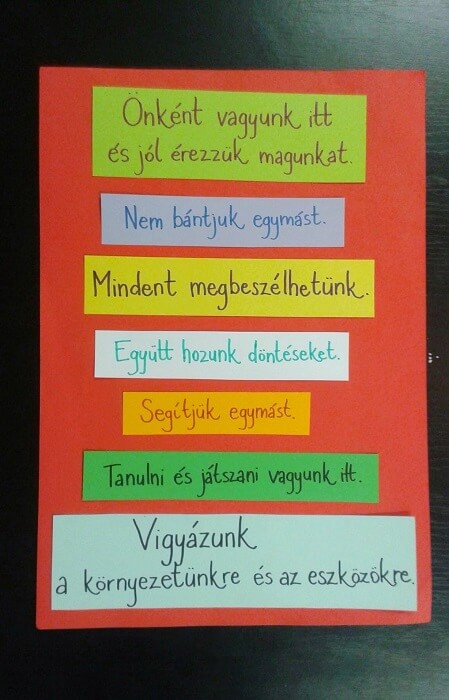 Önként vagyunk itt
és jól érezzük magunkat.
Nem bántjuk egymást.
Mindent megbeszélhetünk.
Együtt hozunk döntéseket.
Segítjük egymást.
Tanulni és játszani vagyunk itt.
Vigyázunk
a környezetünkre és az eszközökre.